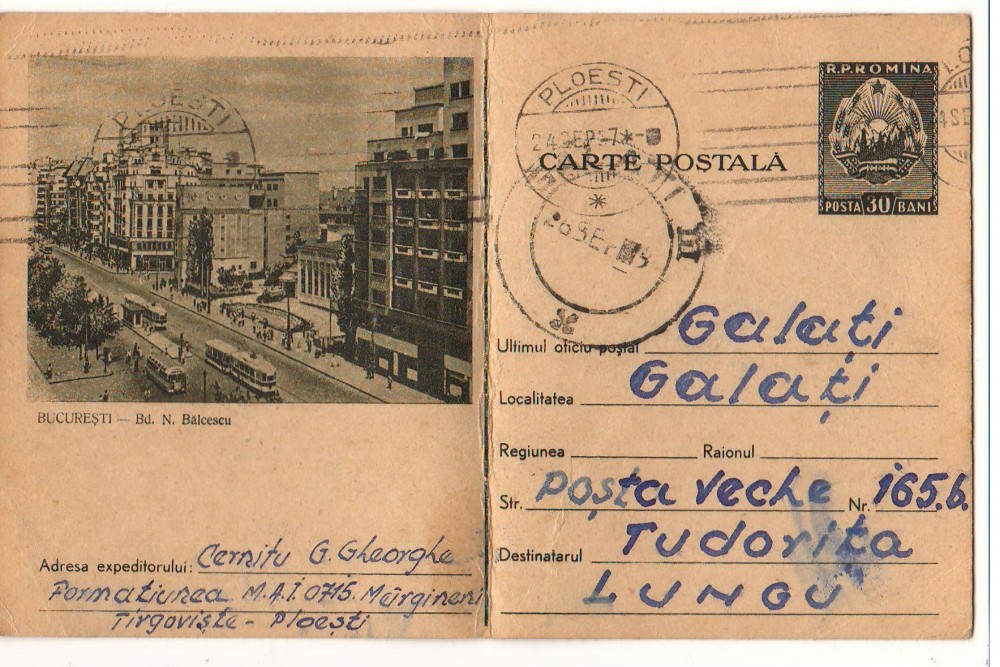 PLOESTI
BUCUREȘTI — Bd. N. Bălcescu
Adresa expeditorului: Cernitu G. Gheorghe
Formatiunea M.A.I. 0715. Mărgineni
Tîrgoviște - Ploești
PLOESTI
24SEP57
CARTE POSTALĂ
R.P.ROMINA
POSTA 30 BANI
Ultimul oficiu poștal Galați
Localitatea Galați
Regiunea Raionul
Str. Poșta veche Nr. 165.b.
Destinatarul Tudorița
LUNGU